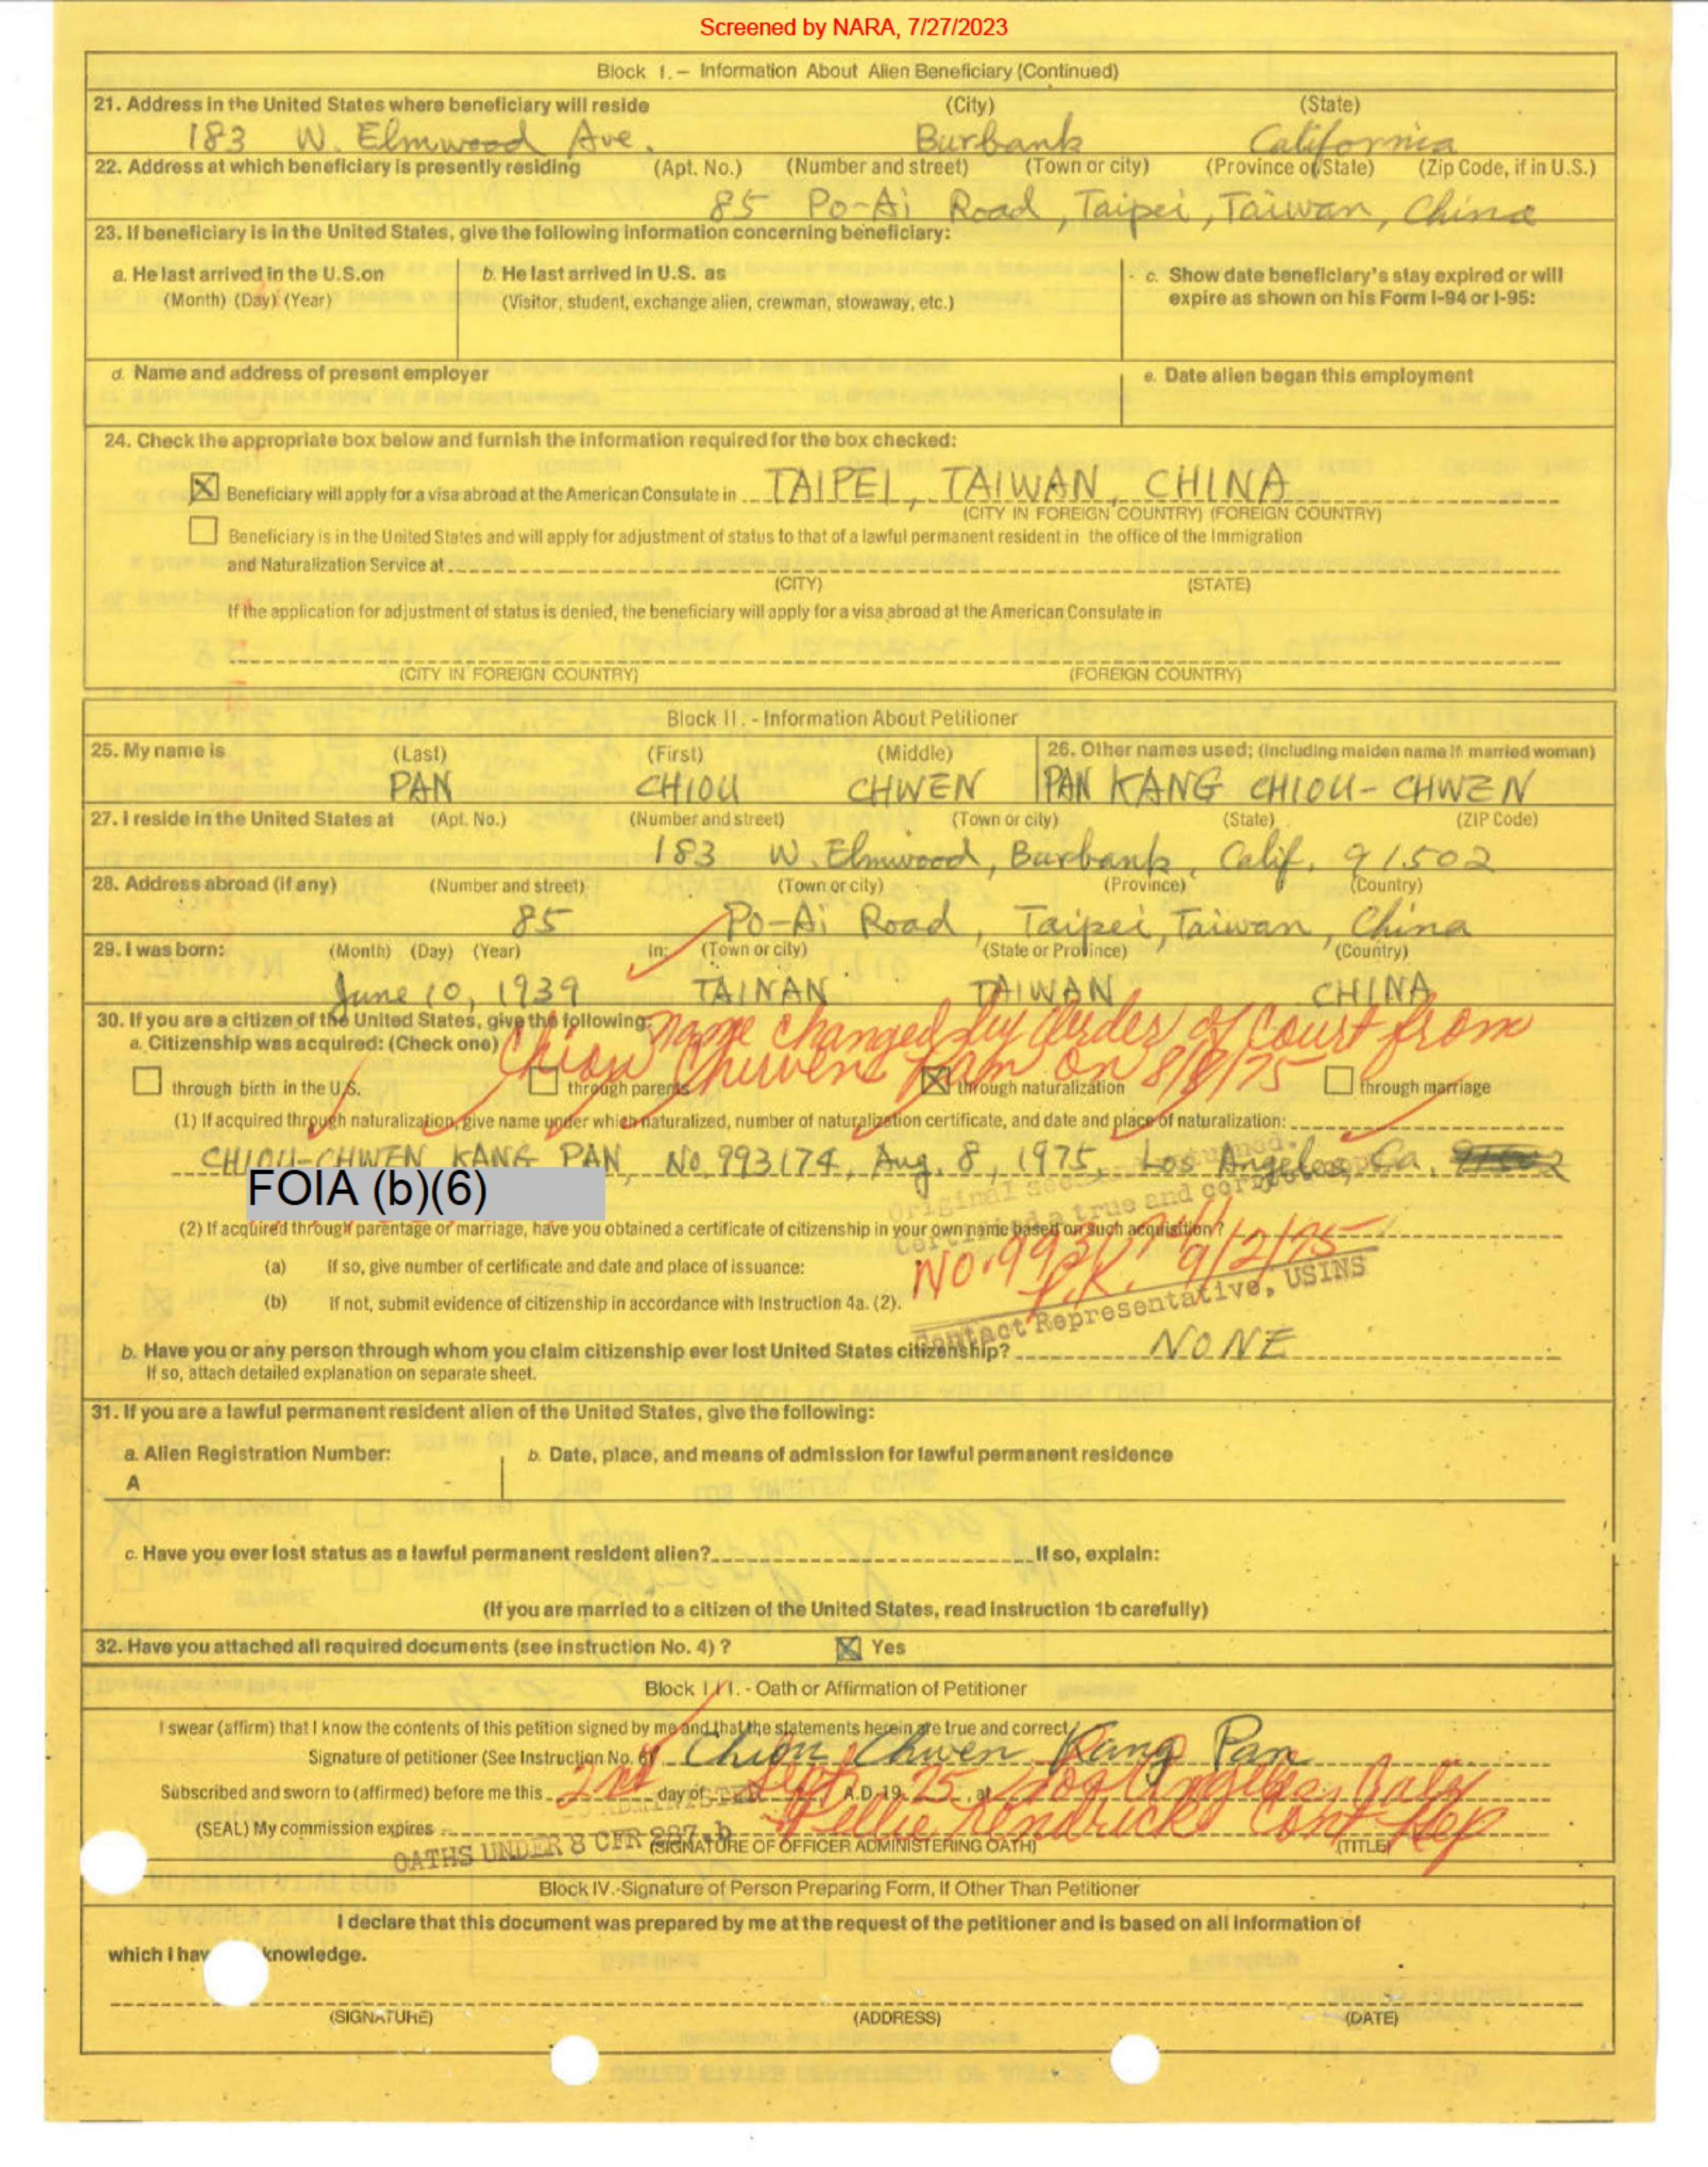 Screened by NARA, 7/27/2023
Block I.- Information About Alien Beneficiary (Continued)
21. Address in the United States where beneficiary will reside (City) (State)
183 W. Elmwood Ave. Burbank California
22. Address at which beneficiary is presently residing (Apt. No.) (Number and street) (Town or city) (Province of/State) (Zip Code, if in U.S.)
85 Po-Ai Road, Taipei, Taiwan, China
23. If beneficiary is in the United States, give the following information concerning beneficiary:
a. He last arrived in the U.S.on b. He last arrived in U.S. as c. Show date beneficiary's stay expired or will
(Month) (Day) (Year) (Visitor, student, exchange alien, crewman, stowaway, etc.) expire as shown on his Form I-94 or I-95:
d. Name and address of present employer e. Date alien began this employment
24. Check the appropriate box below and furnish the information required for the box checked:
Beneficiary will apply for a visa abroad at the American Consulate in TAIPEI, TAIWAN, CHINA
(CITY IN FOREIGN COUNTRY) (FOREIGN COUNTRY)
Beneficiary is in the United States and will apply for adjustment of status to that of a lawful permanent resident in the office of the Immigration
and Naturalization Service at
(CITY) (STATE)
If the application for adjustment of status is denied, the beneficiary will apply for a visa abroad at the American Consulate in
(CITY IN FOREIGN COUNTRY) (FOREIGN COUNTRY)
Block II. - Information About Petitioner
25. My name is (Last) (First) (Middle) 26. Other names used; (including maiden name if married woman)
PAN CHIOU CHWEN PAN KANG CHIOU-CHWEN
27. I reside in the United States at (Apt. No.) (Number and street) (Town or city) (State) (ZIP Code)
183 W. Elmwood, Burbank, Calif, 91502
28. Address abroad (if any) (Number and street) (Town or city) (Province) (Country)
85 Po-Ai Road, Taipei, Taiwan, China
29. I was born: (Month) (Day) (Year) In: (Town or city) (State or Province) (Country)
June 10, 1939 TAINAN TAIWAN CHINA
30. If you are a citizen of the United States, give the following:
name changed by Order of Court from
a. Citizenship was acquired: (Check one)
Chiou Chwen Pan on 8/8/75
through birth in the U.S. through parents through naturalization through marriage
(1) If acquired through naturalization, give name under which naturalized, number of naturalization certificate, and date and place of naturalization:
CHIOU-CHWEN KANG PAN, No. 993174, Aug. 8, 1975, Los Angeles, Ca.
FOIA (b)(6)
Certified a true and correct
(2) If acquired through parentage or marriage, have you obtained a certificate of citizenship in your own name based on such acquisition?
(a) If so, give number of certificate and date and place of issuance:
No. 993174 9/2/75
(b) If not, submit evidence of citizenship in accordance with Instruction 4a. (2).
Contact Representative, USINS
b. Have you or any person through whom you claim citizenship ever lost United States citizenship? NONE
If so, attach detailed explanation on separate sheet.
31. If you are a lawful permanent resident alien of the United States, give the following:
a. Alien Registration Number: b. Date, place, and means of admission for lawful permanent residence
A
c. Have you ever lost status as a lawful permanent resident alien? If so, explain:
(If you are married to a citizen of the United States, read Instruction 1b carefully)
32. Have you attached all required documents (see instruction No. 4) ? Yes
Block III. - Oath or Affirmation of Petitioner
I swear (affirm) that I know the contents of this petition signed by me and that the statements herein are true and correct.
Signature of petitioner (See Instruction No. 6) Chiou Chwen Kang Pan
Subscribed and sworn to (affirmed) before me this 2nd day of Sept, A.D. 19 75, at Los Angeles, Calif
Nellie Kendricks Cont Rep
(SEAL) My commission expires
OATHS UNDER 8 CFR 287.b (SIGNATURE OF OFFICER ADMINISTERING OATH) (TITLE)
Block IV.-Signature of Person Preparing Form, If Other Than Petitioner
I declare that this document was prepared by me at the request of the petitioner and is based on all information of
which I hav knowledge.
(SIGNATURE) (ADDRESS) (DATE)